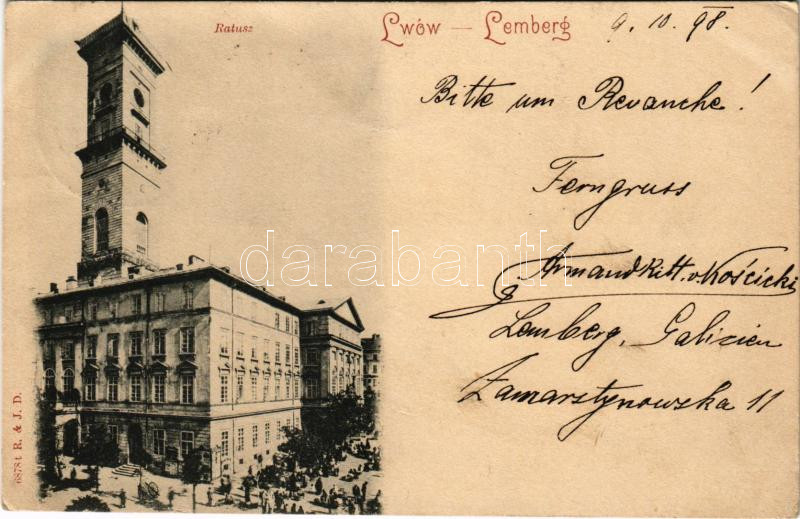 Ratusz
Lwów — Lemberg
9. 10. 98.
Bitte um Revanche!
Ferngruss
Armand Ritt. v. Kościcki
Lemberg, Galizien
Zamarstynowska 11
darabanth
R. & J. D.